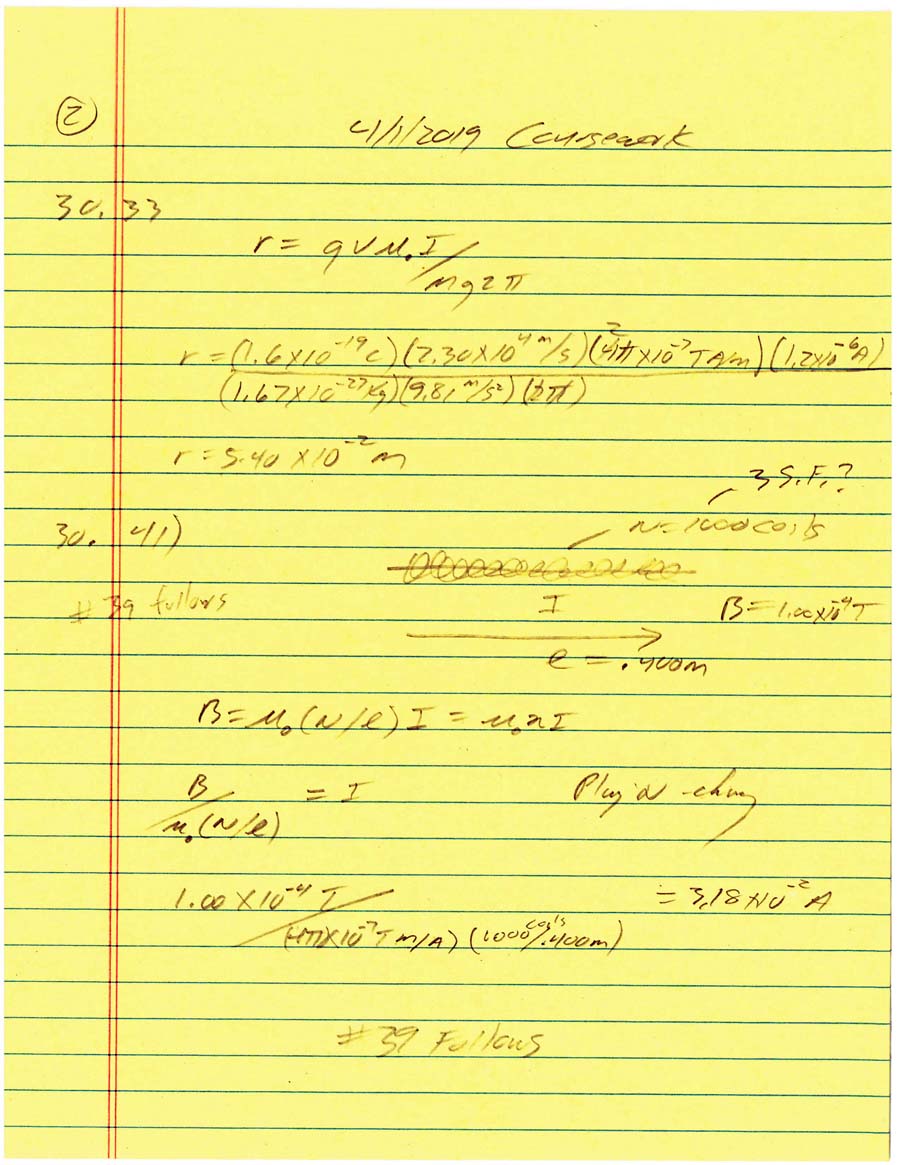 ②
4/1/2019 Coursework
30.33
r = qvμ₀I / mg2π
r = (1.6×10⁻¹⁹C)(2.30×10⁴ m/s)(4π×10⁻⁷ T A/m)(1.2×10⁻⁶A)
2
(1.67×10⁻²⁷Kg)(9.81 m/s²)(2π)
r = 5.40 ×10⁻² m
3 S.F.?
30. 41)
N = 1000 coils
# 39 follows
I
B = 1.00×10⁻⁴ T
ℓ = .400m
B = μ₀(N/ℓ)I = μ₀nI
B / μ₀(N/ℓ) = I
Plug n chug
1.00 ×10⁻⁴ T / (4π×10⁻⁷ T m/A)(1000 coils/.400m) = 3.18×10⁻² A
#39 Follows